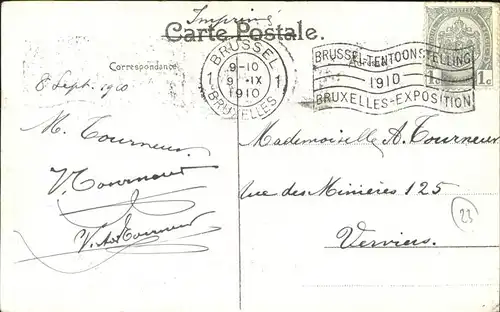 Imprimé
Carte Postale.
Correspondance
8 Sept. 1910
BRUSSEL
1 9-10 1
9 IX
1910
BRUXELLES
BRUSSEL-TENTOONSTELLING
1910
BRUXELLES-EXPOSITION
1c 1c
M. Tourneur
V. Tournout
V. Tourneur
Mademoiselle A. Tourneur
Rue des Minières 125
Verviers.
23